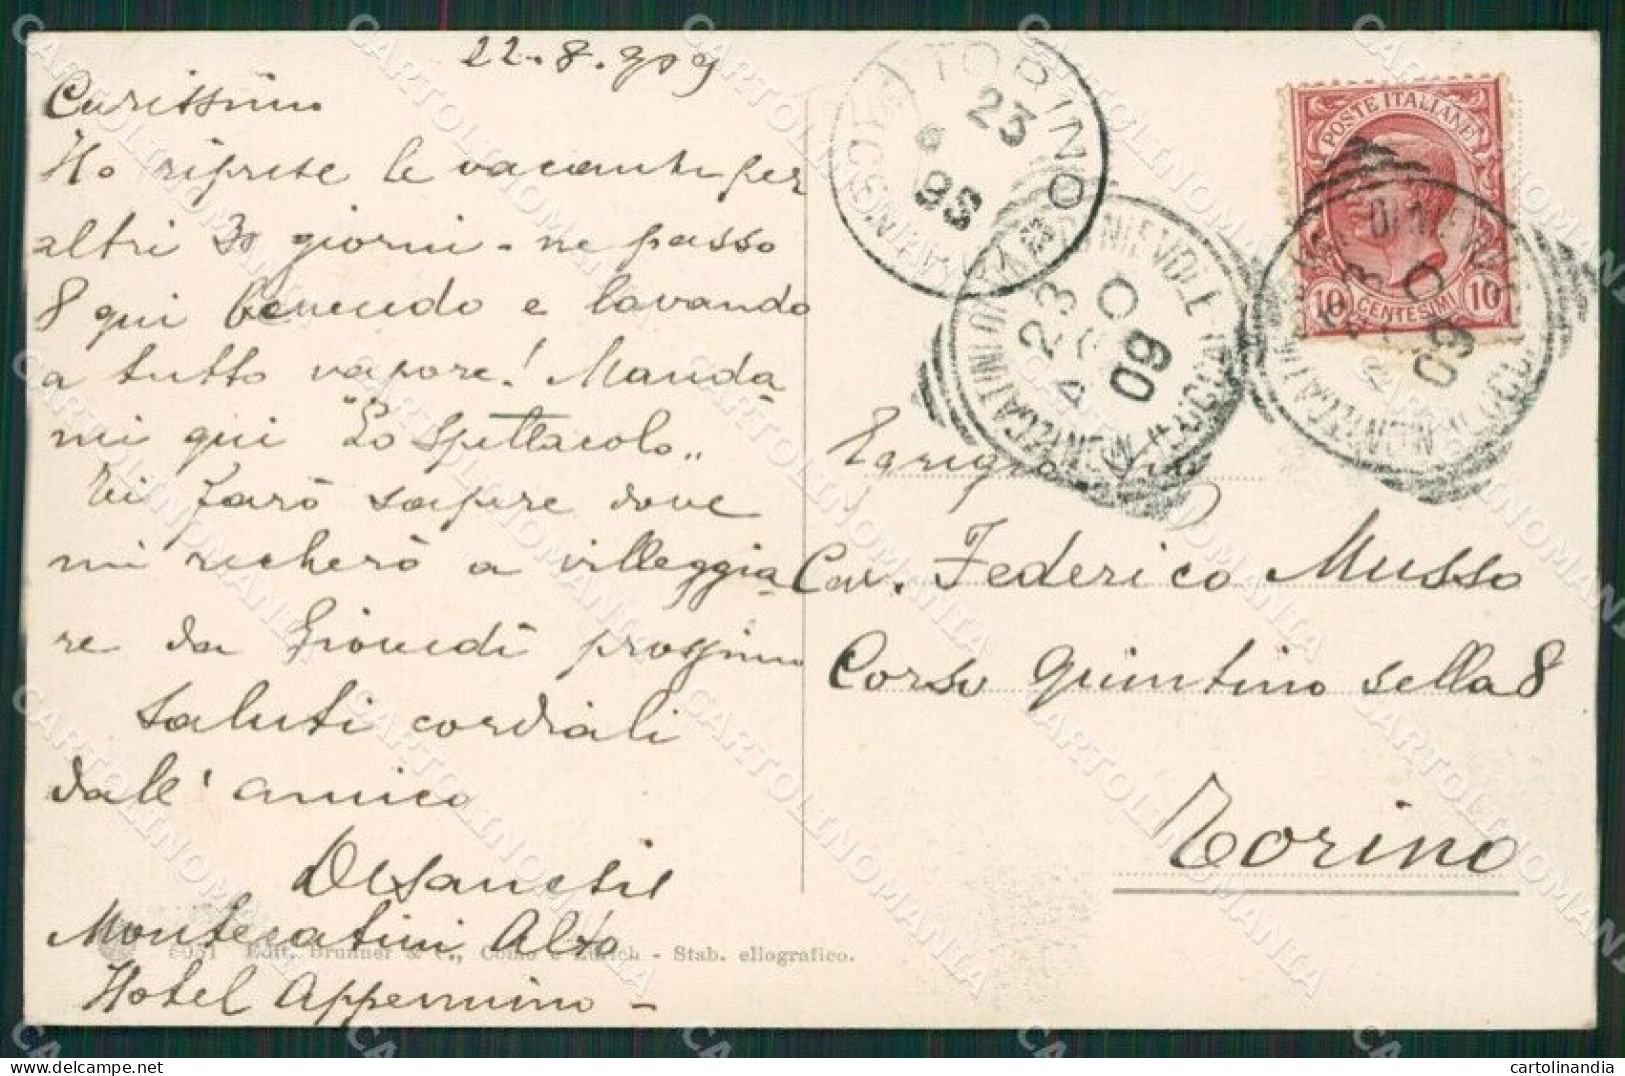 22.8.909
Carissimo
Ho riprese le vacanze per
altri 30 giorni - ne passo
8 qui bevendo e lavando
a tutto vapore! Manda-
mi qui "Lo Spettacolo„
Ti farò sapere dove
mi recherò a villeggia-
re da Giovedì prossimo
Saluti cordiali
dall' amico
Montecatini Alto
Hotel Appennino -
8051 Edit. Brunner & C., Como e Zürich - Stab. eliografico.
TORINO
23
POSTE ITALIANE
10 CENTESIMI 10
MONTECATINI DI VAL DI NIEVOLE (LUCCA)
23 AGO 09
MONTECATINI DI VAL DI NIEVOLE (LUCCA)
09
Egregio Sig.
Cav. Federico Musso
Corso Quintino Sella 8
Torino
CARTOLINOMANIA
cartolinandia